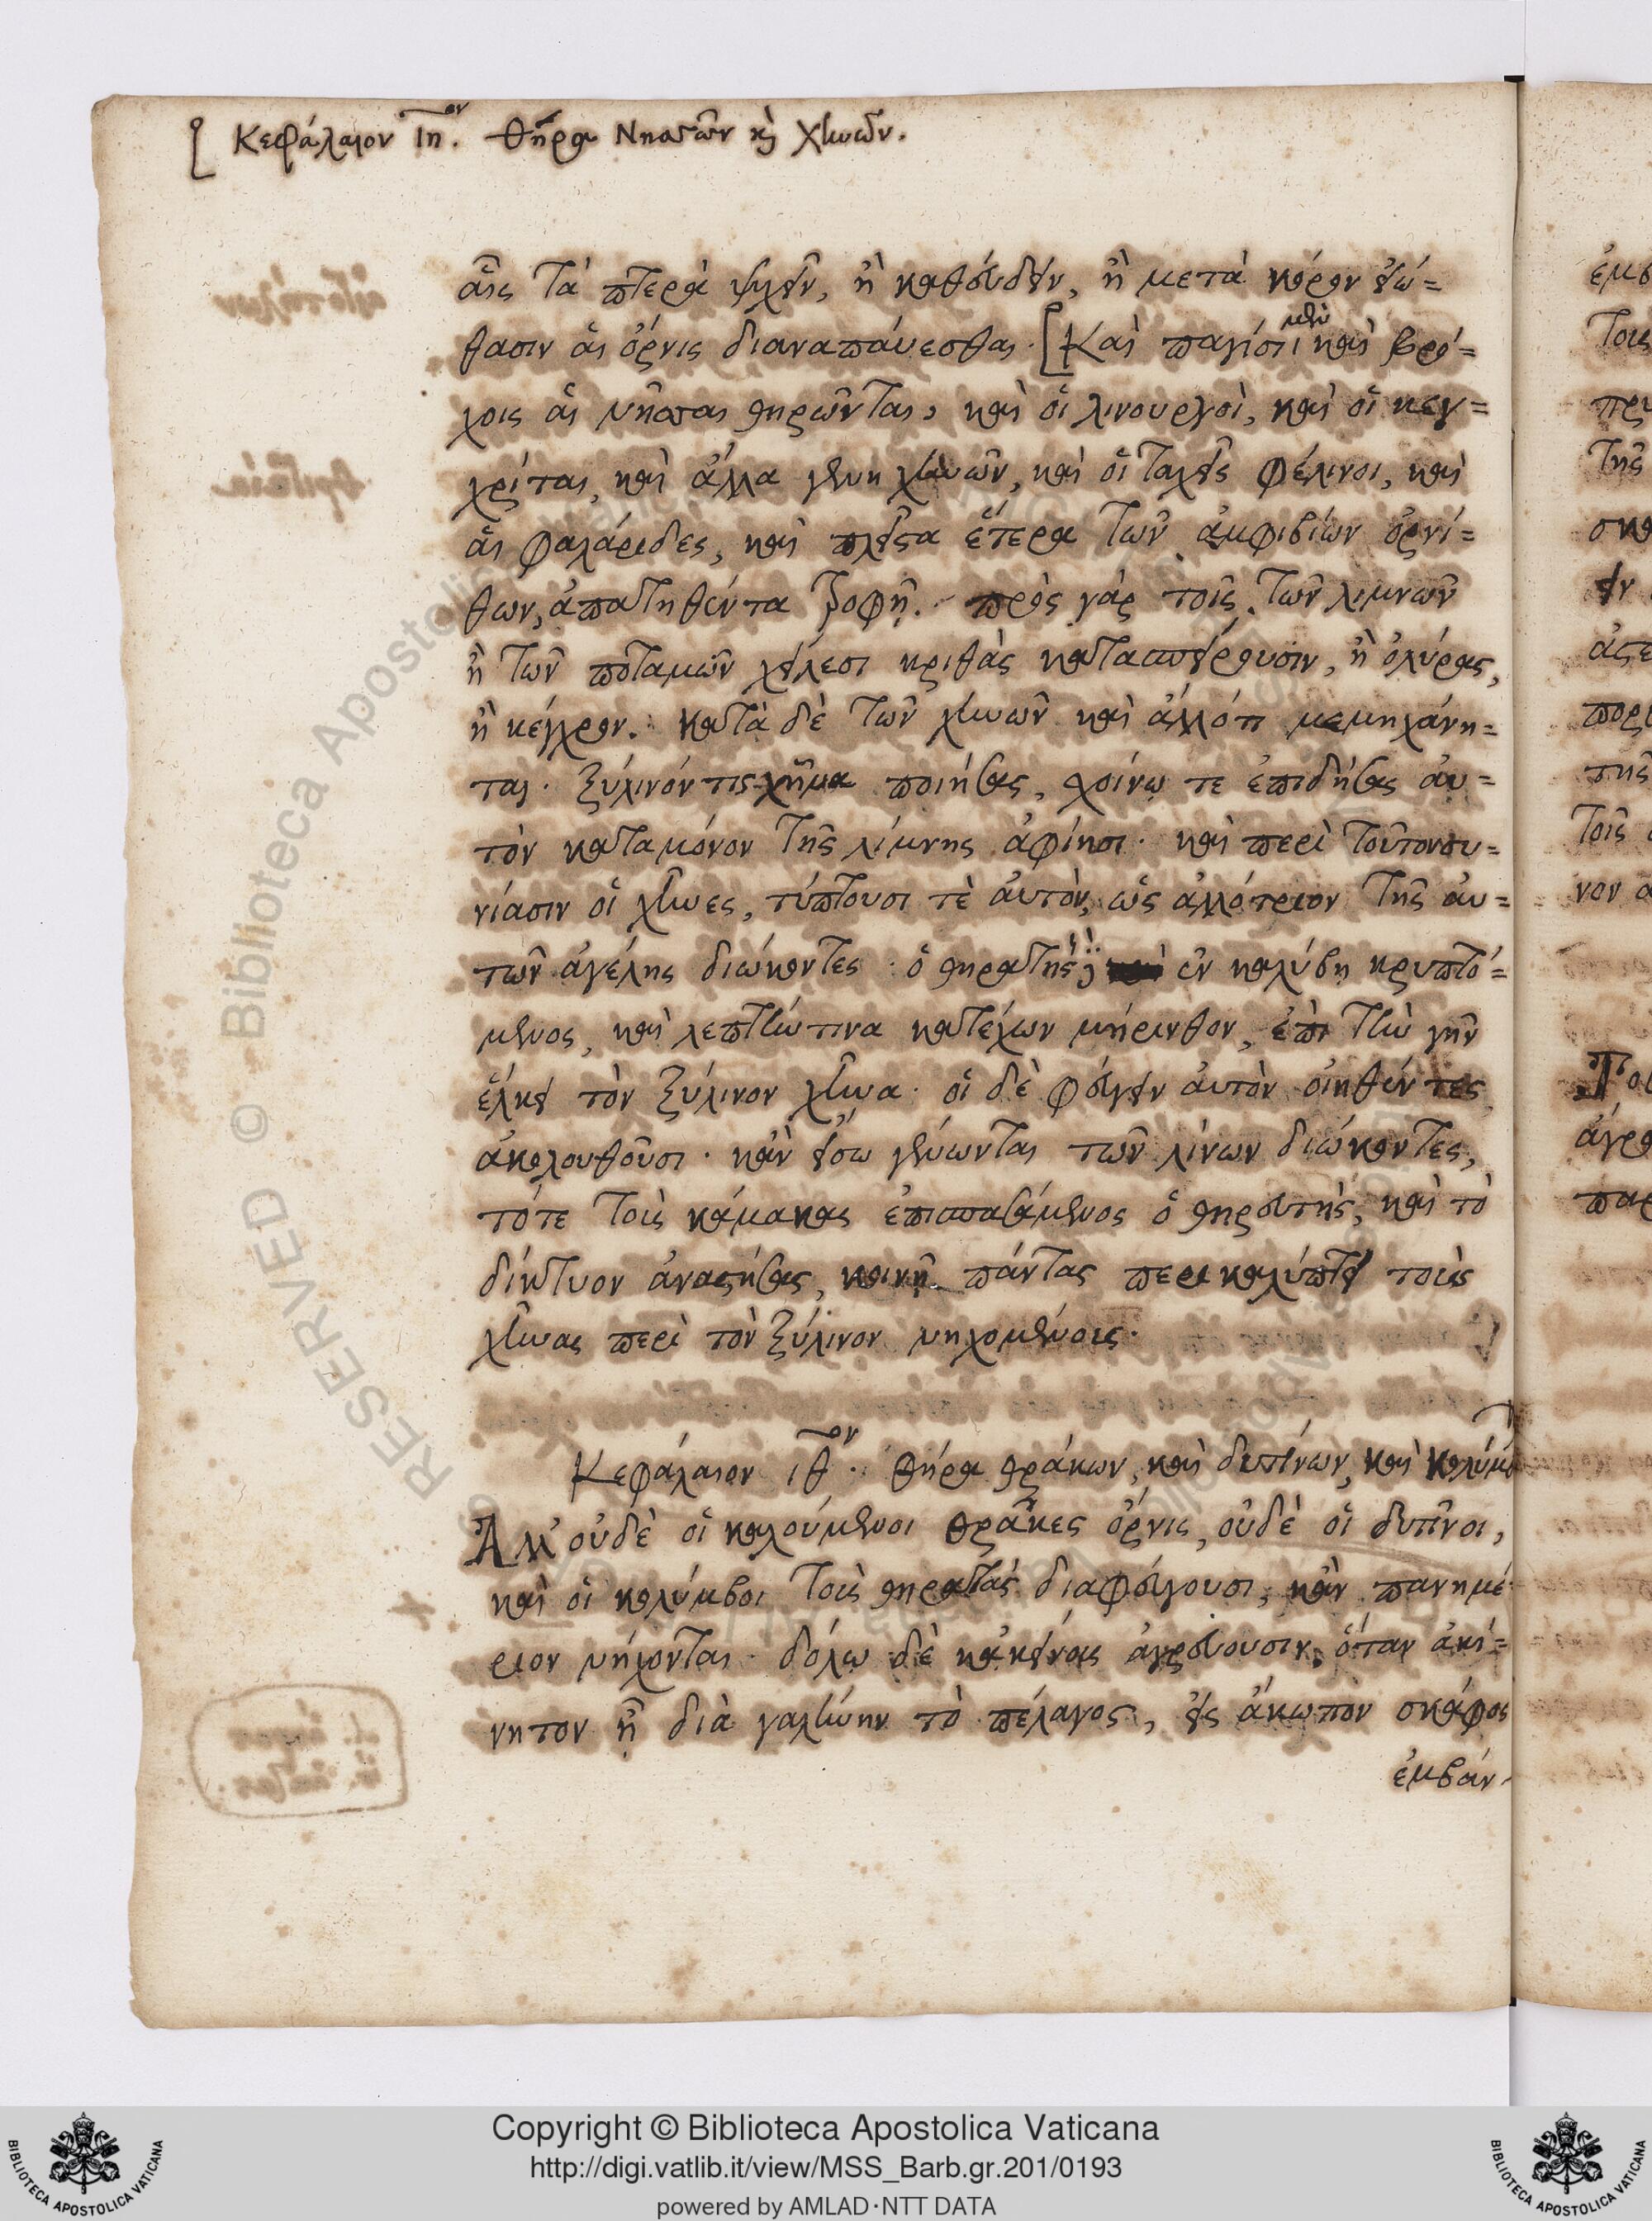 Κεφάλαιον ιη^ον. Θήρα Νησσῶν κỳ Χηνῶν.
αἷς τὰ πτερὰ ψύχειν, ἢ καθεύδειν, ἢ μετὰ κόρον εἰώ=
θασιν αἱ ὄρνις διαναπάυεσθαι. [Καὶ παγίσι μὲν καὶ βρό=
χοις αἱ νῆσσαι θηρῶνται, καὶ οἱ λινουργοὶ, καὶ οἱ κεγ=
χρίται, καὶ ἄλλα γένη χηνῶν, καὶ οἱ ταχεῖς φέλινοι, καὶ
αἱ φαλάριδες, καὶ πλεῖστα ἕτερα τῶν ἀμφιβίων ὀρνί=
θων, ἀπατηθέντα τροφῇ. πρὸς γάρ τοῖς τῶν λιμνῶν
ἢ τῶν ποταμῶν χείλεσι κριθὰς κατασπείρουσιν, ἢ ὀλύρας,
ἢ κέγχρον. κατὰ δὲ τῶν χηνῶν καὶ ἀλλότι μεμηχάνη=
ται. ξύλινόν τις χῆνα ποιήσας, σχοίνῳ τε ἐπιδήσας ἀυ=
τὸν καταμόνον τῆς λίμνης ἀφίησι. καὶ περὶ τοῦτονσυ=
νίασιν οἱ χῆνες, τύπτουσι τὲ ἀυτὸν, ὡς ἀλλότριον τῆς ἀυ=
τῶν ἀγέλης διώκοντες. ὁ θηρατὴς δὲ ἐν καλύβῃ κρυπτό=
μενος, καὶ λεπτήν τινα κατέχων μήρινθον, ἐπὶ τὴν γῆν
ἕλκει τὸν ξύλινον χῆνα. οἱ δὲ φεύγειν ἀυτὸν οἰηθέντες
ἀκολουθοῦσι. κἂν εἴσω γένωνται τῶν λίνων διώκοντες,
τότε τοὺς κάμακας ἐπισπασάμενος ὁ θηρευτὴς, καὶ τὸ
δίκτυον ἀναστήσας, κοινῇ πάντας περικαλύπτει τοὺς
χῆνας περὶ τὸν ξύλινον νηχομένους.
Κεφάλαιον ιθ^ον. Θήρα θρᾴκων, καὶ δυπίνων, καὶ κολύμβ
Ἀλλ' οὐδὲ οἱ καλούμενοι θρᾷκες ὄρνις, οὐδὲ οἱ δυπῖνοι,
καὶ οἱ κολύμβοι τοὺς θηρατὰς διαφεύγουσι, κἂν πανημέ
ριον νήχονται. δόλῳ δὲ κἀκείνας ἀγρεύουσιν. ὅταν ἀκί=
νητον ᾖ διὰ γαλήνην τὸ πέλαγος, εἰς ἄκωπον σκάφος
ἐμβάν
Copyright © Biblioteca Apostolica Vaticana
http://digi.vatlib.it/view/MSS_Barb.gr.201/0193
powered by AMLAD·NTT DATA